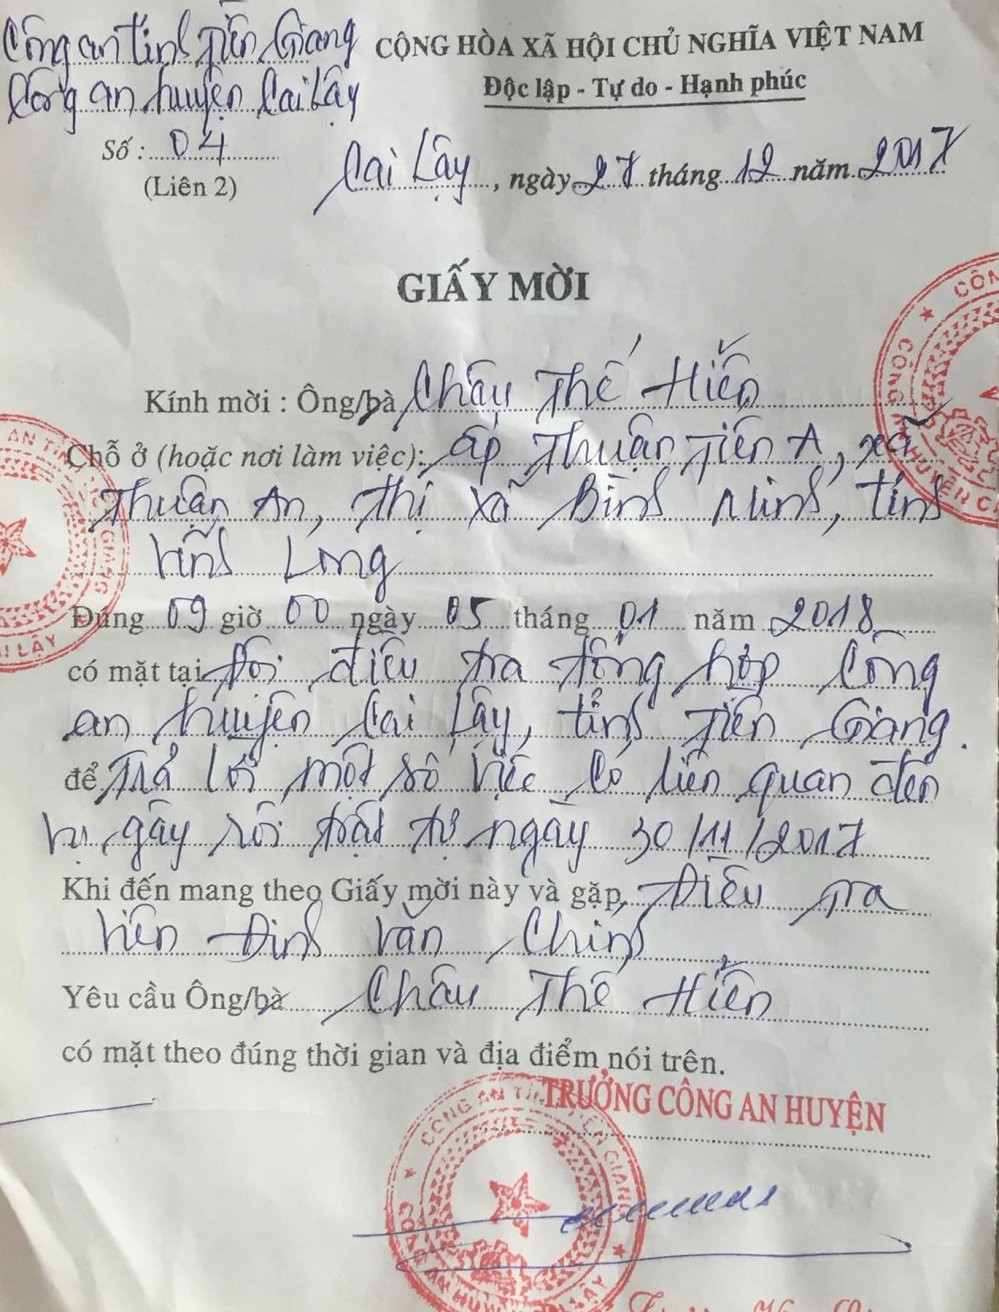 Công an tỉnh Tiền Giang
Công an huyện Cai Lậy
CỘNG HÒA XÃ HỘI CHỦ NGHĨA VIỆT NAM
Độc lập - Tự do - Hạnh phúc
Số : 04
(Liên 2)
Cai Lậy, ngày 27 tháng 12 năm 2017
GIẤY MỜI
Kính mời : Ông/bà Châu Thế Hiển
Chỗ ở (hoặc nơi làm việc): ấp Thuận Tiến A, xã
Thuận An, Thị xã Bình Minh, tỉnh
Vĩnh Long
Đúng 09 giờ 00 ngày 05 tháng 01 năm 2018
có mặt tại Đội điều tra tổng hợp Công
an huyện Cai Lậy, tỉnh Tiền Giang.
để Trả lời một số việc có liên quan đến
vụ gây rối trật tự ngày 30/11/2017
Khi đến mang theo Giấy mời này và gặp Điều tra
viên Đinh Văn Chinh
Yêu cầu Ông/bà Châu Thế Hiển
có mặt theo đúng thời gian và địa điểm nói trên.
TRƯỞNG CÔNG AN HUYỆN